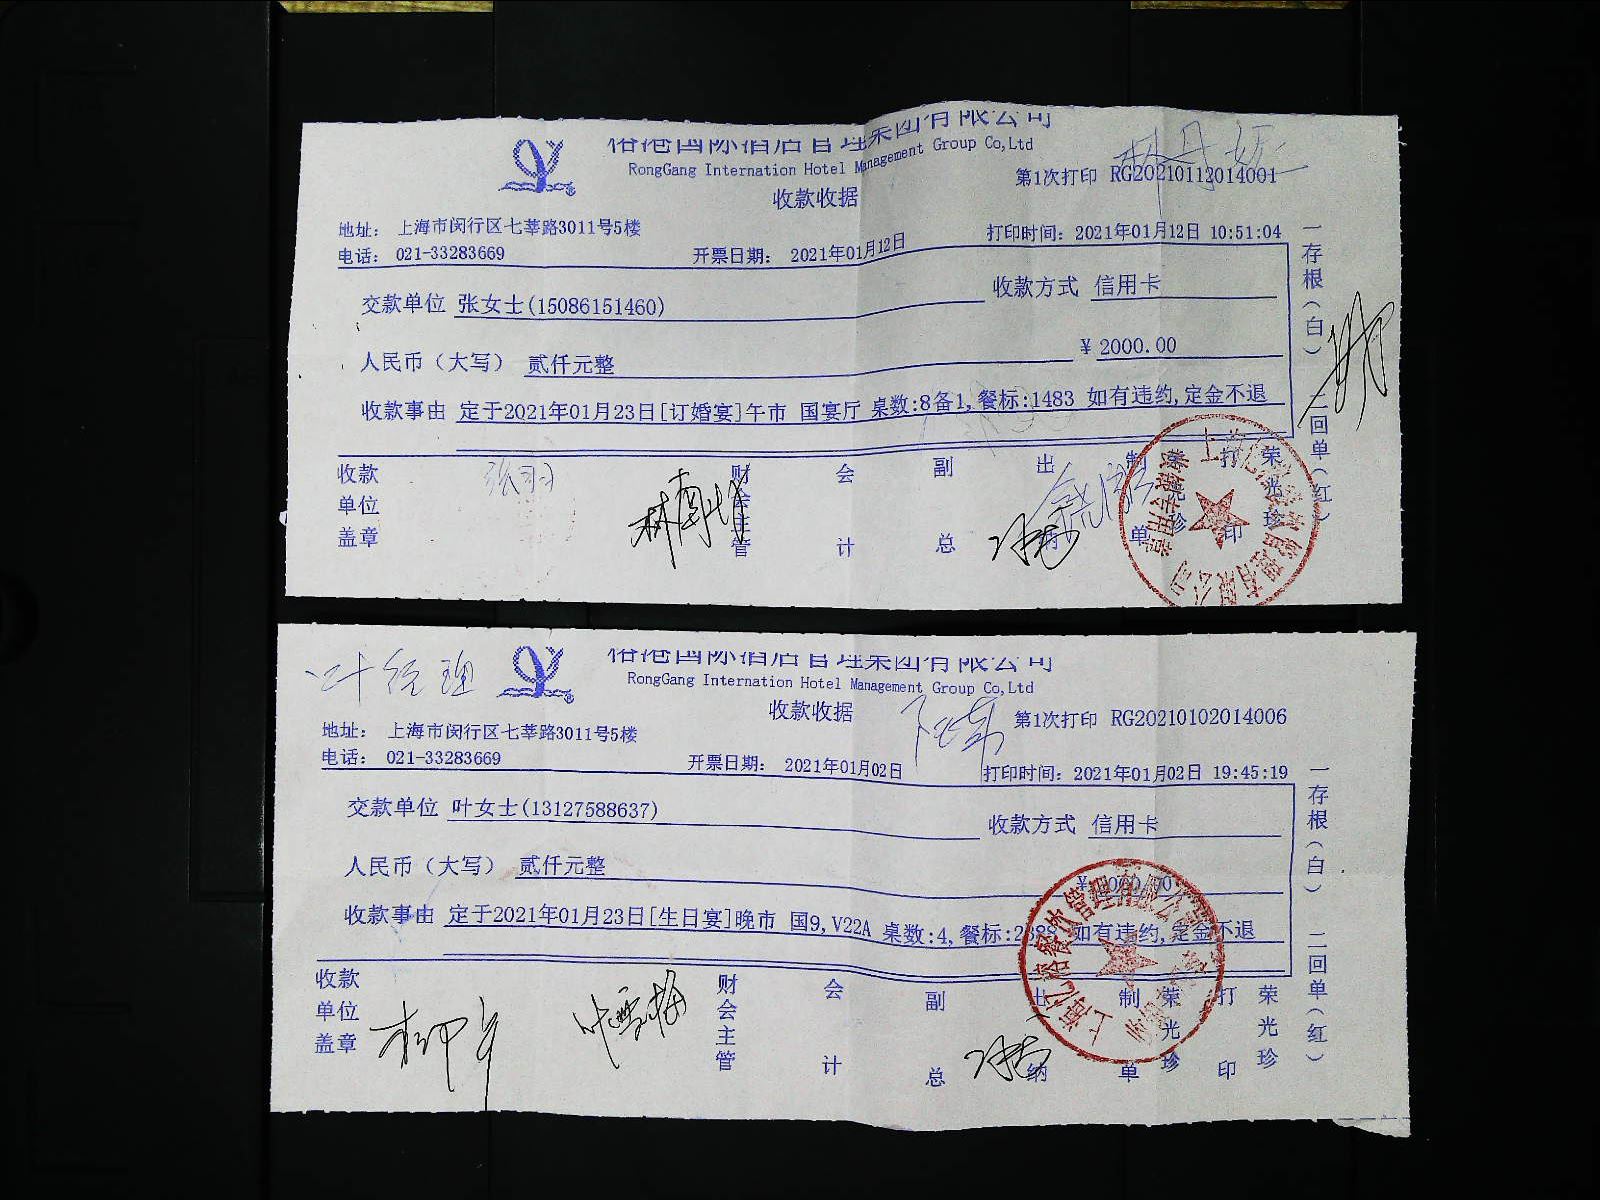 裕港国际酒店管理集团有限公司
RongGang Internation Hotel Management Group Co,Ltd
收款收据
第1次打印 RG20210112014001
地址: 上海市闵行区七莘路3011号5楼
电话: 021-33283669
开票日期: 2021年01月12日
打印时间: 2021年01月12日 10:51:04
交款单位 张女士(15086151460)
收款方式 信用卡
人民币(大写) 贰仟元整
¥ 2000.00
收款事由 定于2021年01月23日[订婚宴]午市 国宴厅 桌数:8备1,餐标:1483 如有违约,定金不退
收款单位盖章
财会主管
会计
副总
出纳
制单
荣光珍
打印
荣光珍
一存根(白) 二回单(红)
叶经理
裕港国际酒店管理集团有限公司
RongGang Internation Hotel Management Group Co,Ltd
收款收据
第1次打印 RG20210102014006
地址: 上海市闵行区七莘路3011号5楼
电话: 021-33283669
开票日期: 2021年01月02日
打印时间: 2021年01月02日 19:45:19
交款单位 叶女士(13127588637)
收款方式 信用卡
人民币(大写) 贰仟元整
¥ 2000.00
收款事由 定于2021年01月23日[生日宴]晚市 国9,V22A 桌数:4,餐标:2388 如有违约,定金不退
收款单位盖章
叶雪梅
财会主管
会计
副总
出纳
制单
荣光珍
打印
荣光珍
一存根(白) 二回单(红)